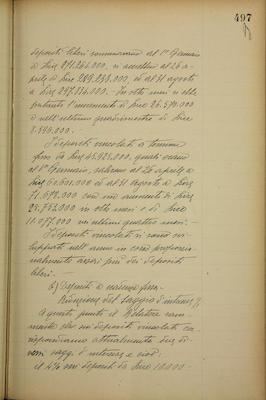 497
depositi liberi sommavano al 1° Gennaio
a Lire 271.264.000, si avevano al 26 a-
prile a Lire 289.238.000, ed al 31 agosto
a Lire 297.834.000. In otto mesi si ebbe
pertanto l'incremento di Lire 26.570.000
e nell'ultimo quadrimestre di Lire
8.596.000.
I depositi vincolati a termine
fisso da Lire 45.925.000, quali erano
al 1° Gennaio, salirono al 26 aprile a
Lire 60.601.000 ed al 31 agosto a Lire
71.678.000 con un aumento di Lire
25.753.000 in otto mesi e di Lire
11.077.000 nei ultimi quattro mesi.
I depositi vincolati si sono svi-
luppati nell'anno in corso proporzio-
nalmente assai più dei depositi
liberi.
6) Depositi a scadenza fissa
Riduzione del saggio d'interesse
A questo punto il Relatore ram-
menta che sui depositi vincolati cor-
rispondiamo attualmente sui di-
versi saggi d'interesse e cioè:
il 4% sui depositi da Lire 10.000